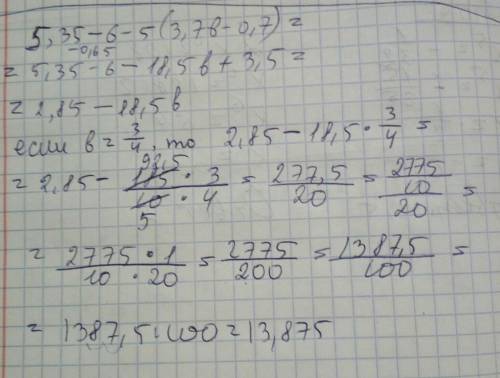 5,35-6-5(3,7в-0,7)=
-0,65
= 5,35-6-18,5в+3,5=
= 2,85-18,5в
если в = 3/4, то 2,85-18,5·3/4 =
92,5
= 2,85- 185·3/10·4 = 277,5/20 = 2775/10/20 =
5
= 2775·1/10·20 = 2775/200 = 1387,5/100 =
= 1387,5:100=13,875